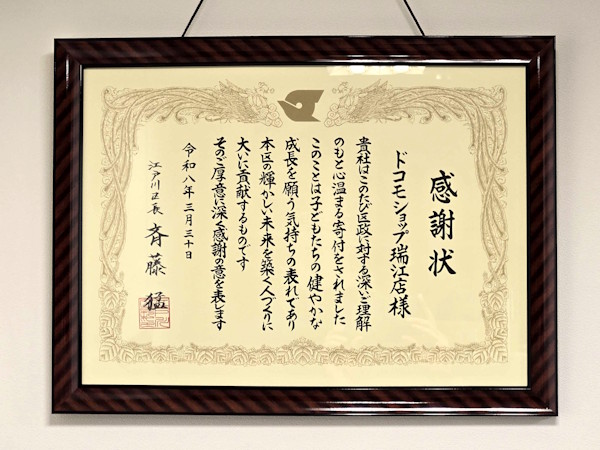 感謝状
ドコモショップ瑞江店様
貴社はこのたび区政に対する深いご理解
のもと心温まる寄付をされました
このことは子どもたちの健やかな
成長を願う気持ちの表れであり
本区の輝かしい未来を築く人づくりに
大いに貢献するものです
そのご厚意に深く感謝の意を表します
令和八年三月三十日
江戸川区長 斉藤 猛